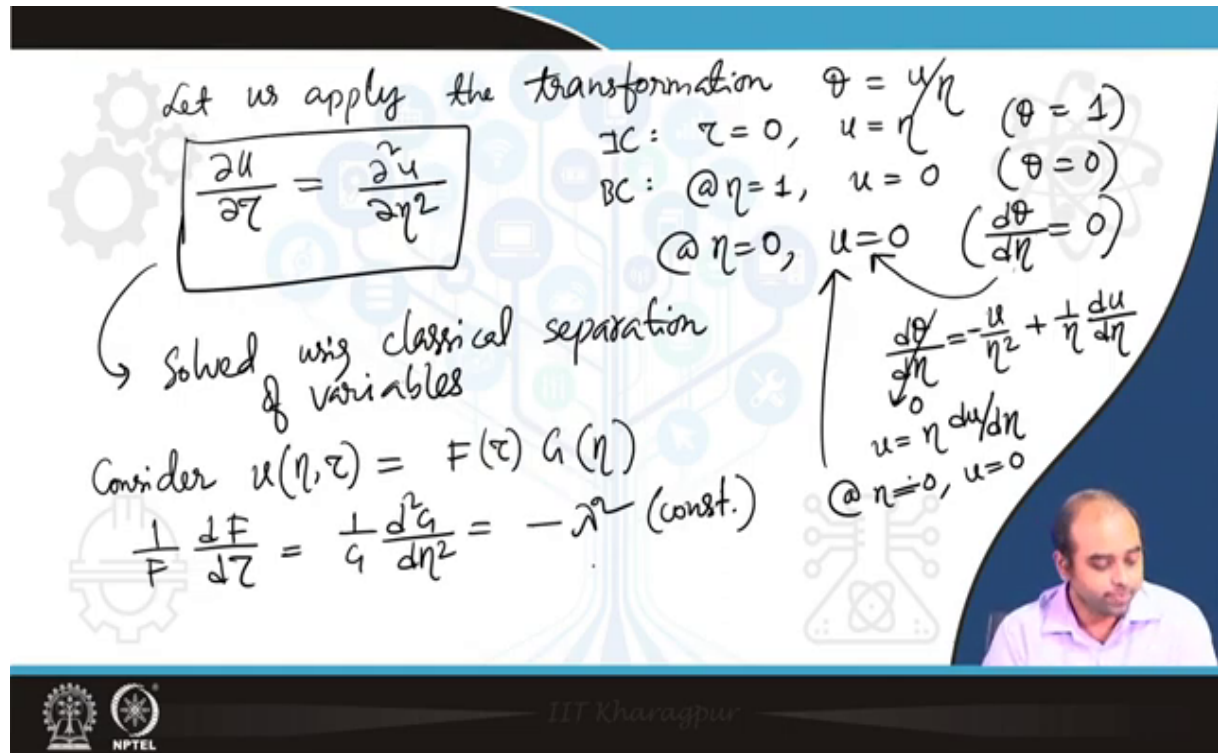 Let us apply the transformation θ = u/η
∂u/∂τ = ∂²u/∂η²
IC: τ = 0, u = η (θ = 1)
BC: @ η = 1, u = 0 (θ = 0)
@ η = 0, u = 0 (dθ/dη = 0)
dθ/dη = -u/η² + 1/η du/dη
0
u = η du/dη
@ η = 0, u = 0
Solved using classical separation
of variables
Consider u(η, τ) = F(τ) G(η)
1/F dF/dτ = 1/G d²G/dη² = -λ² (const.)
IIT Kharagpur
NPTEL